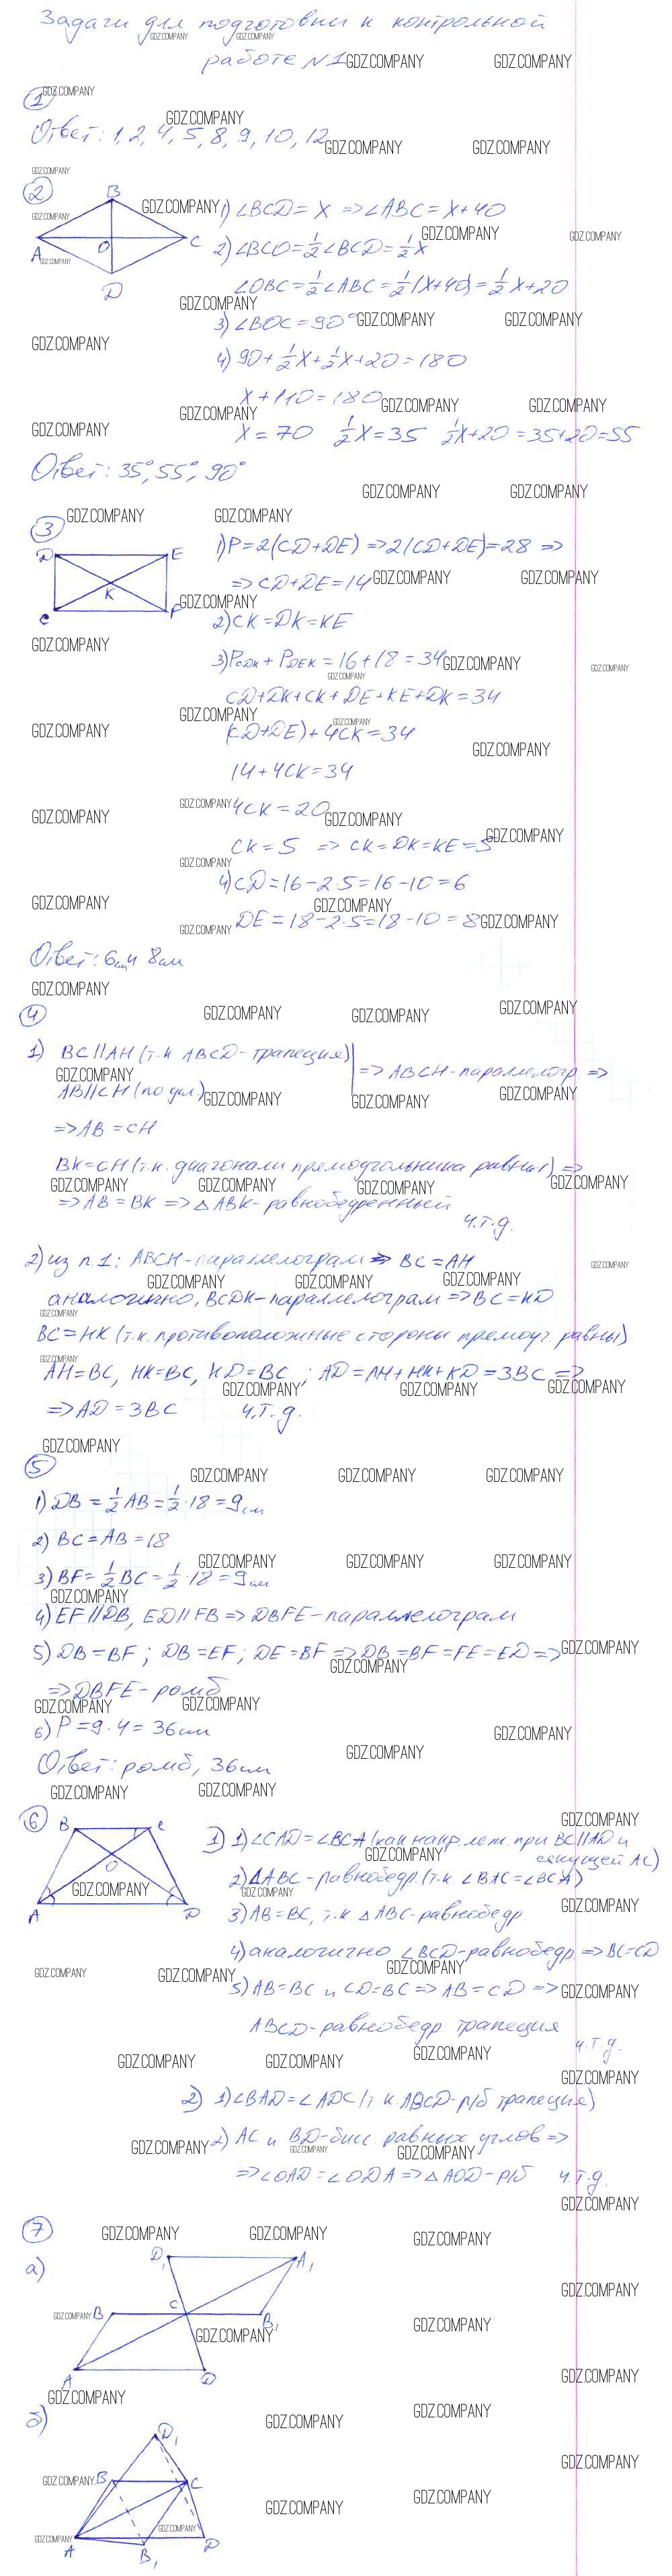 Задачи для подготовки к контрольной
работе N1
1
Ответ: 1, 2, 4, 5, 8, 9, 10, 12
2
B
A
O
C
D
1) ∠BCD = X => ∠ABC = X+40
2) ∠BCO = 1/2 ∠BCD = 1/2 X
∠OBC = 1/2 ∠ABC = 1/2 (X+40) = 1/2 X+20
3) ∠BOC = 90°
4) 90 + 1/2 X + 1/2 X + 20 = 180
X + 110 = 180
X = 70 1/2 X = 35 1/2 X + 20 = 35+20 = 55
Ответ: 35°, 55°, 90°
3
D
E
K
C
F
1) P = 2(CD+DE) => 2(CD+DE) = 28 =>
=> CD+DE = 14
2) CK = DK = KE
3) PCDK + PDEK = 16+18 = 34
CD+DK+CK+DE+KE+DK = 34
(CD+DE)+4CK = 34
14+4CK = 34
4CK = 20
CK = 5 => CK = DK = KE = 5
4) CD = 16-2·5 = 16-10 = 6
DE = 18-2·5 = 18-10 = 8
Ответ: 6см и 8см
4
1) BC||AH (т.к. ABCD-трапеция)
AB||CH (по усл.)
=> ABCH-параллелогр. =>
=> AB = CH
BK = CH (т.к. диагонали прямоугольника равны) =>
=> AB = BK => △ABK-равнобедренный
ч.т.д.
2) из п.1: ABCH-параллелограм => BC = AH
аналогично, BCDK-параллелограм => BC = KD
BC = HK (т.к. противоположные стороны прямоуг. равны)
AH = BC, HK = BC, KD = BC ; AD = AH+HK+KD = 3BC =>
=> AD = 3BC ч.т.д.
5
1) DB = 1/2 AB = 1/2 · 18 = 9см
2) BC = AB = 18
3) BF = 1/2 BC = 1/2 · 18 = 9см
4) EF||DB, ED||FB => DBFE-параллелограм
5) DB = BF ; DB = EF ; DE = BF => DB = BF = FE = ED =>
=> DBFE-ромб
6) P = 9·4 = 36см
Ответ: ромб, 36см
6
B
C
O
A
D
1) 1) ∠CAD = ∠BCA (как накр. леж. при BC||AD и
секущей AC)
2) △ABC-равнобедр. (т.к. ∠BAC = ∠BCA)
3) AB = BC, т.к △ABC-равнобедр
4) аналогично ∠BCD-равнобедр => BC = CD
5) AB = BC и CD = BC => AB = CD =>
ABCD-равнобедр трапеция
ч.т.д.
2) 1) ∠BAD = ∠ADC (т.к. ABCD-р/б трапеция)
2) AC и BD-бисс. равных углов =>
=> ∠OAD = ∠ODA => △AOD-р/б ч.т.д.
7
а)
D1
A1
B
C
B1
A
D
б)
D1
B
C
A
B1
D
GDZ.COMPANY